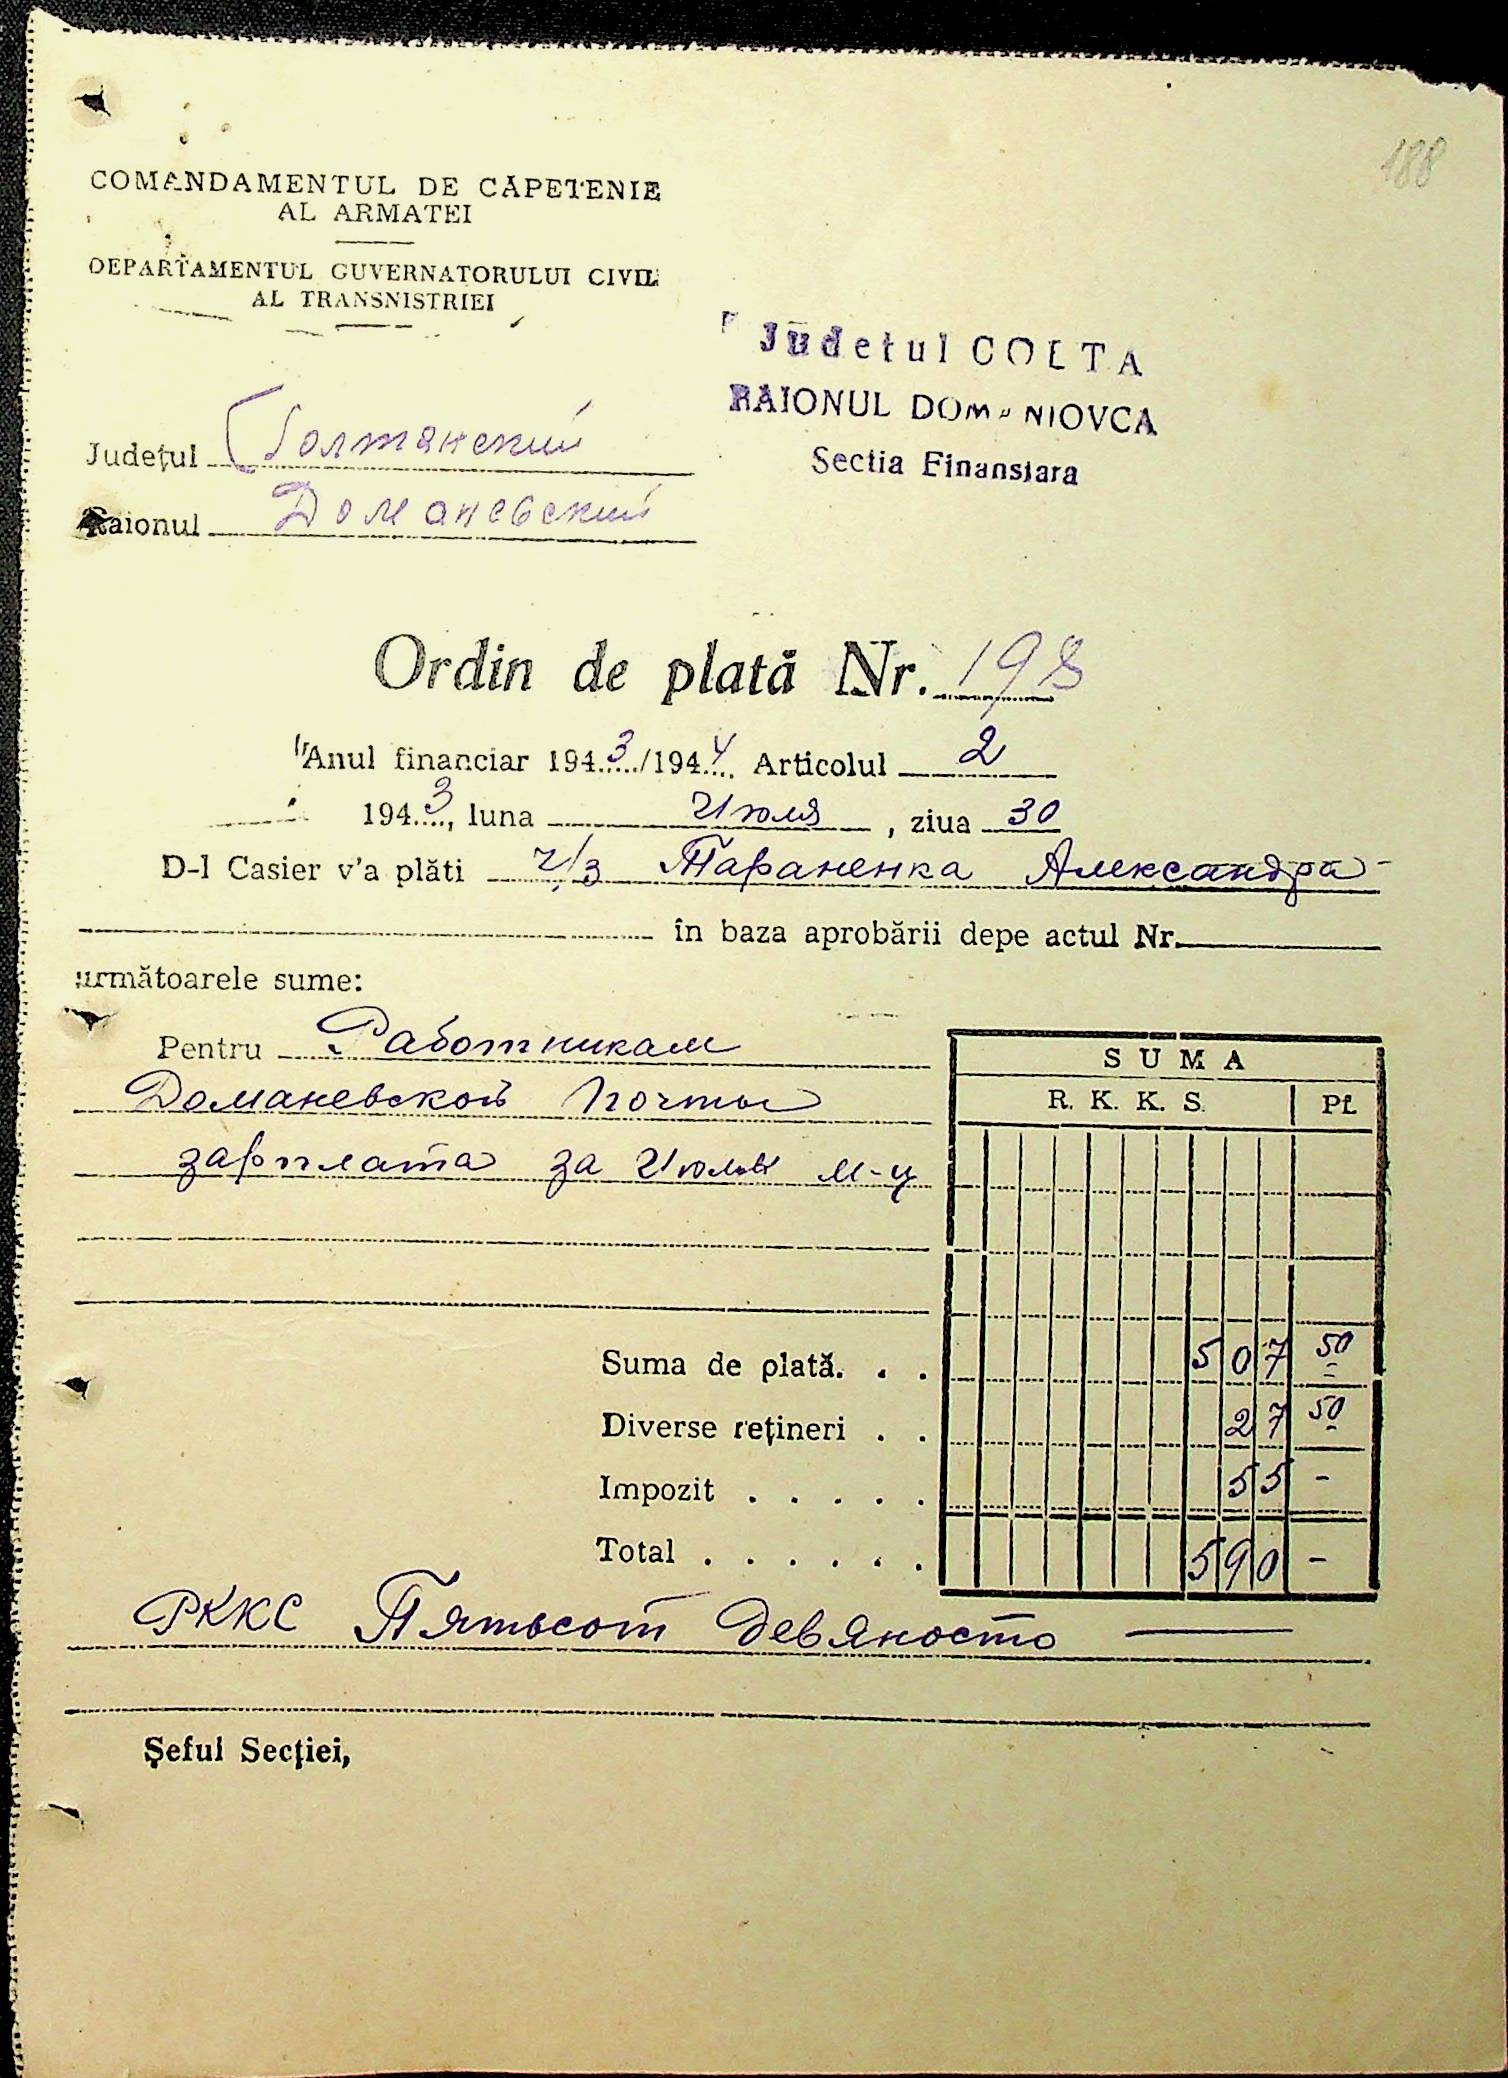 188
COMANDAMENTUL DE CĂPETENIE
AL ARMATEI
DEPARTAMENTUL GUVERNATORULUI CIVIL
AL TRANSNISTRIEI
Judetul GOLTA
RAIONUL DOM NIOVCA
Sectia Finansiara
Județul Голтянский
Raionul Доманевский
Ordin de plată Nr. 198
Anul financiar 1943/1944 Articolul 2
1943, luna Июля, ziua 30
D-l Casier v'a plăti ч/з Тараненка Александра
în baza aprobării depe actul Nr.
următoarele sume:
Pentru Работникам
Доманевской Почты
зарплата за Июль м-ц
SUMA
R. K. K. S. Pf.
Suma de plată. . . 507 50
Diverse rețineri . . 27 50
Impozit . . . . . 55 -
Total . . . . . . 590 -
РККС Пятьсот девяносто
Șeful Secției,